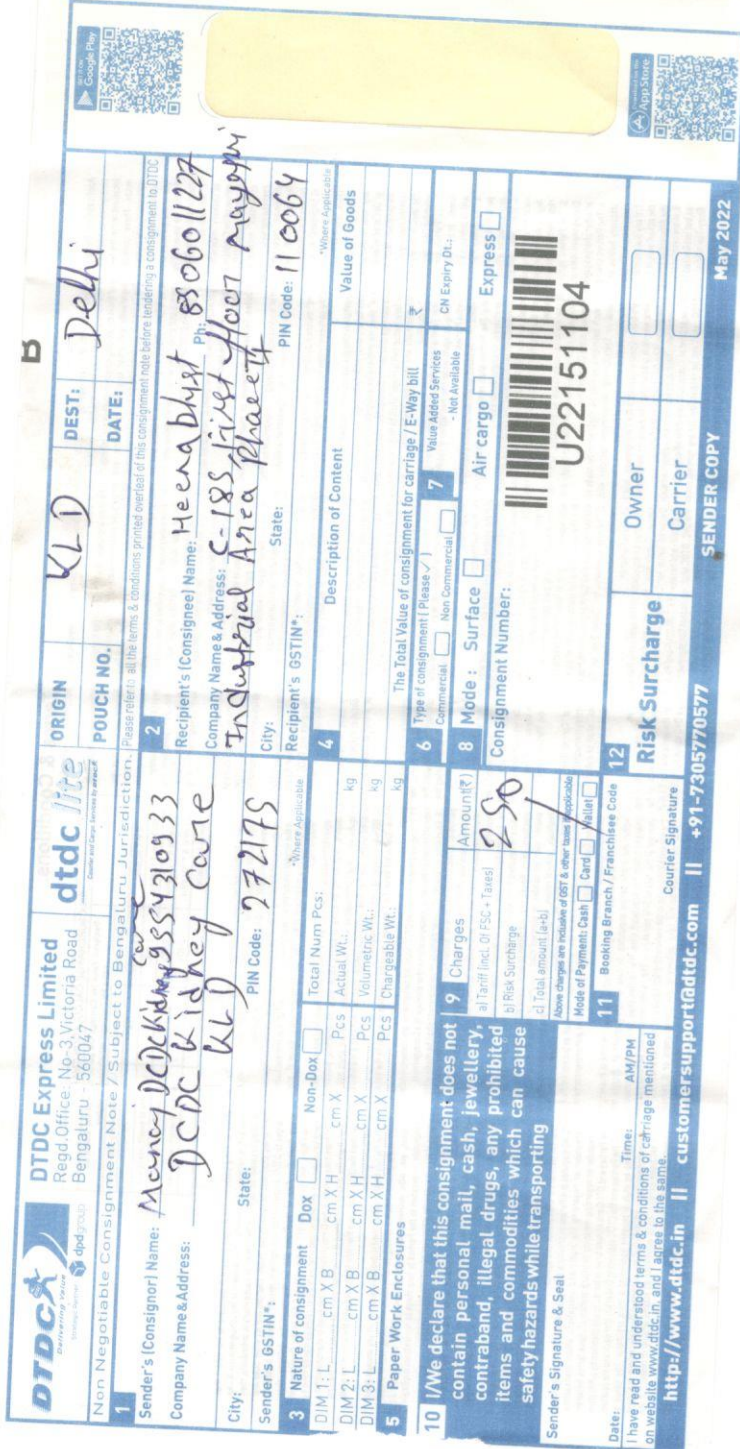 DTDC
Delivering Value
dpdgroup
DTDC Express Limited
Regd.Office: No-3, Victoria Road
Bengaluru - 560047
dtdc lite
ORIGIN KLD
DEST: Delhi
B
POUCH NO.
DATE:
Non Negotiable Consignment Note / Subject to Bengaluru Jurisdiction. Please refer to all the terms & conditions printed overleaf of this consignment note before tendering a consignment to DTDC
1
Sender's (Consignor) Name: Manoj DCDC Kidney Care 9354310933
Company Name&Address: DCDC Kidney Care
KLD
City: State: PIN Code: 272175
Sender's GSTIN*: *Where Applicable
2
Recipient's (Consignee) Name: Heena Dhyst Ph: 8506011227
Company Name & Address: C-185, First floor mayapuri
Industrial Area Phace II
City: State: PIN Code: 110064
Recipient's GSTIN*: *Where Applicable
3 Nature of consignment Dox Non-Dox Total Num Pcs:
DIM 1: L cm X B cm X H cm X Pcs Actual Wt.: kg
DIM 2: L cm X B cm X H cm X Pcs Volumetric Wt.: kg
DIM 3: L cm X B cm X H cm X Pcs Chargeable Wt.: kg
4 Description of Content Value of Goods
The Total Value of consignment for carriage / E-Way bill ₹
5 Paper Work Enclosures
6 Type of consignment ( Please ✓ )
Commercial Non Commercial
7 Value Added Services
- Not Available
CN Expiry Dt.:
8 Mode : Surface Air cargo Express
Consignment Number:
U22151104
9 Charges Amount(₹)
a) Tariff (Incl. Of FSC + Taxes) 250
b) Risk Surcharge
c) Total amount (a+b)
Above charges are inclusive of GST & other taxes if applicable
Mode of Payment: Cash Card Wallet
10 I/We declare that this consignment does not
contain personal mail, cash, jewellery,
contraband, illegal drugs, any prohibited
items and commodities which can cause
safety hazards while transporting
Sender's Signature & Seal
Date: Time: AM/PM
I have read and understood terms & conditions of carriage mentioned
on website www.dtdc.in, and I agree to the same.
11 Booking Branch / Franchisee Code
Courier Signature
12 Risk Surcharge
Owner
Carrier
http://www.dtdc.in || customersupport@dtdc.com || +91-7305770577 SENDER COPY May 2022
GET IT ON
Google Play
Download on the
App Store